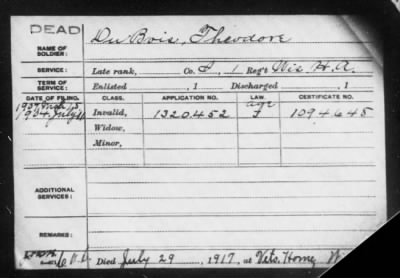 DEAD
NAME OF SOLDIER: Du Bois, Theodore
SERVICE: Late rank, Co. 1 Reg't Wis H.A.
TERM OF SERVICE: Enlisted , 1 Discharged , 1
DATE OF FILING. CLASS. APPLICATION NO. LAW. CERTIFICATE NO.
age
Invalid, 1320.452 J 1094645
Widow,
Minor,
ADDITIONAL SERVICES:
REMARKS:
Died July 29 , 1917, at Vets. Home